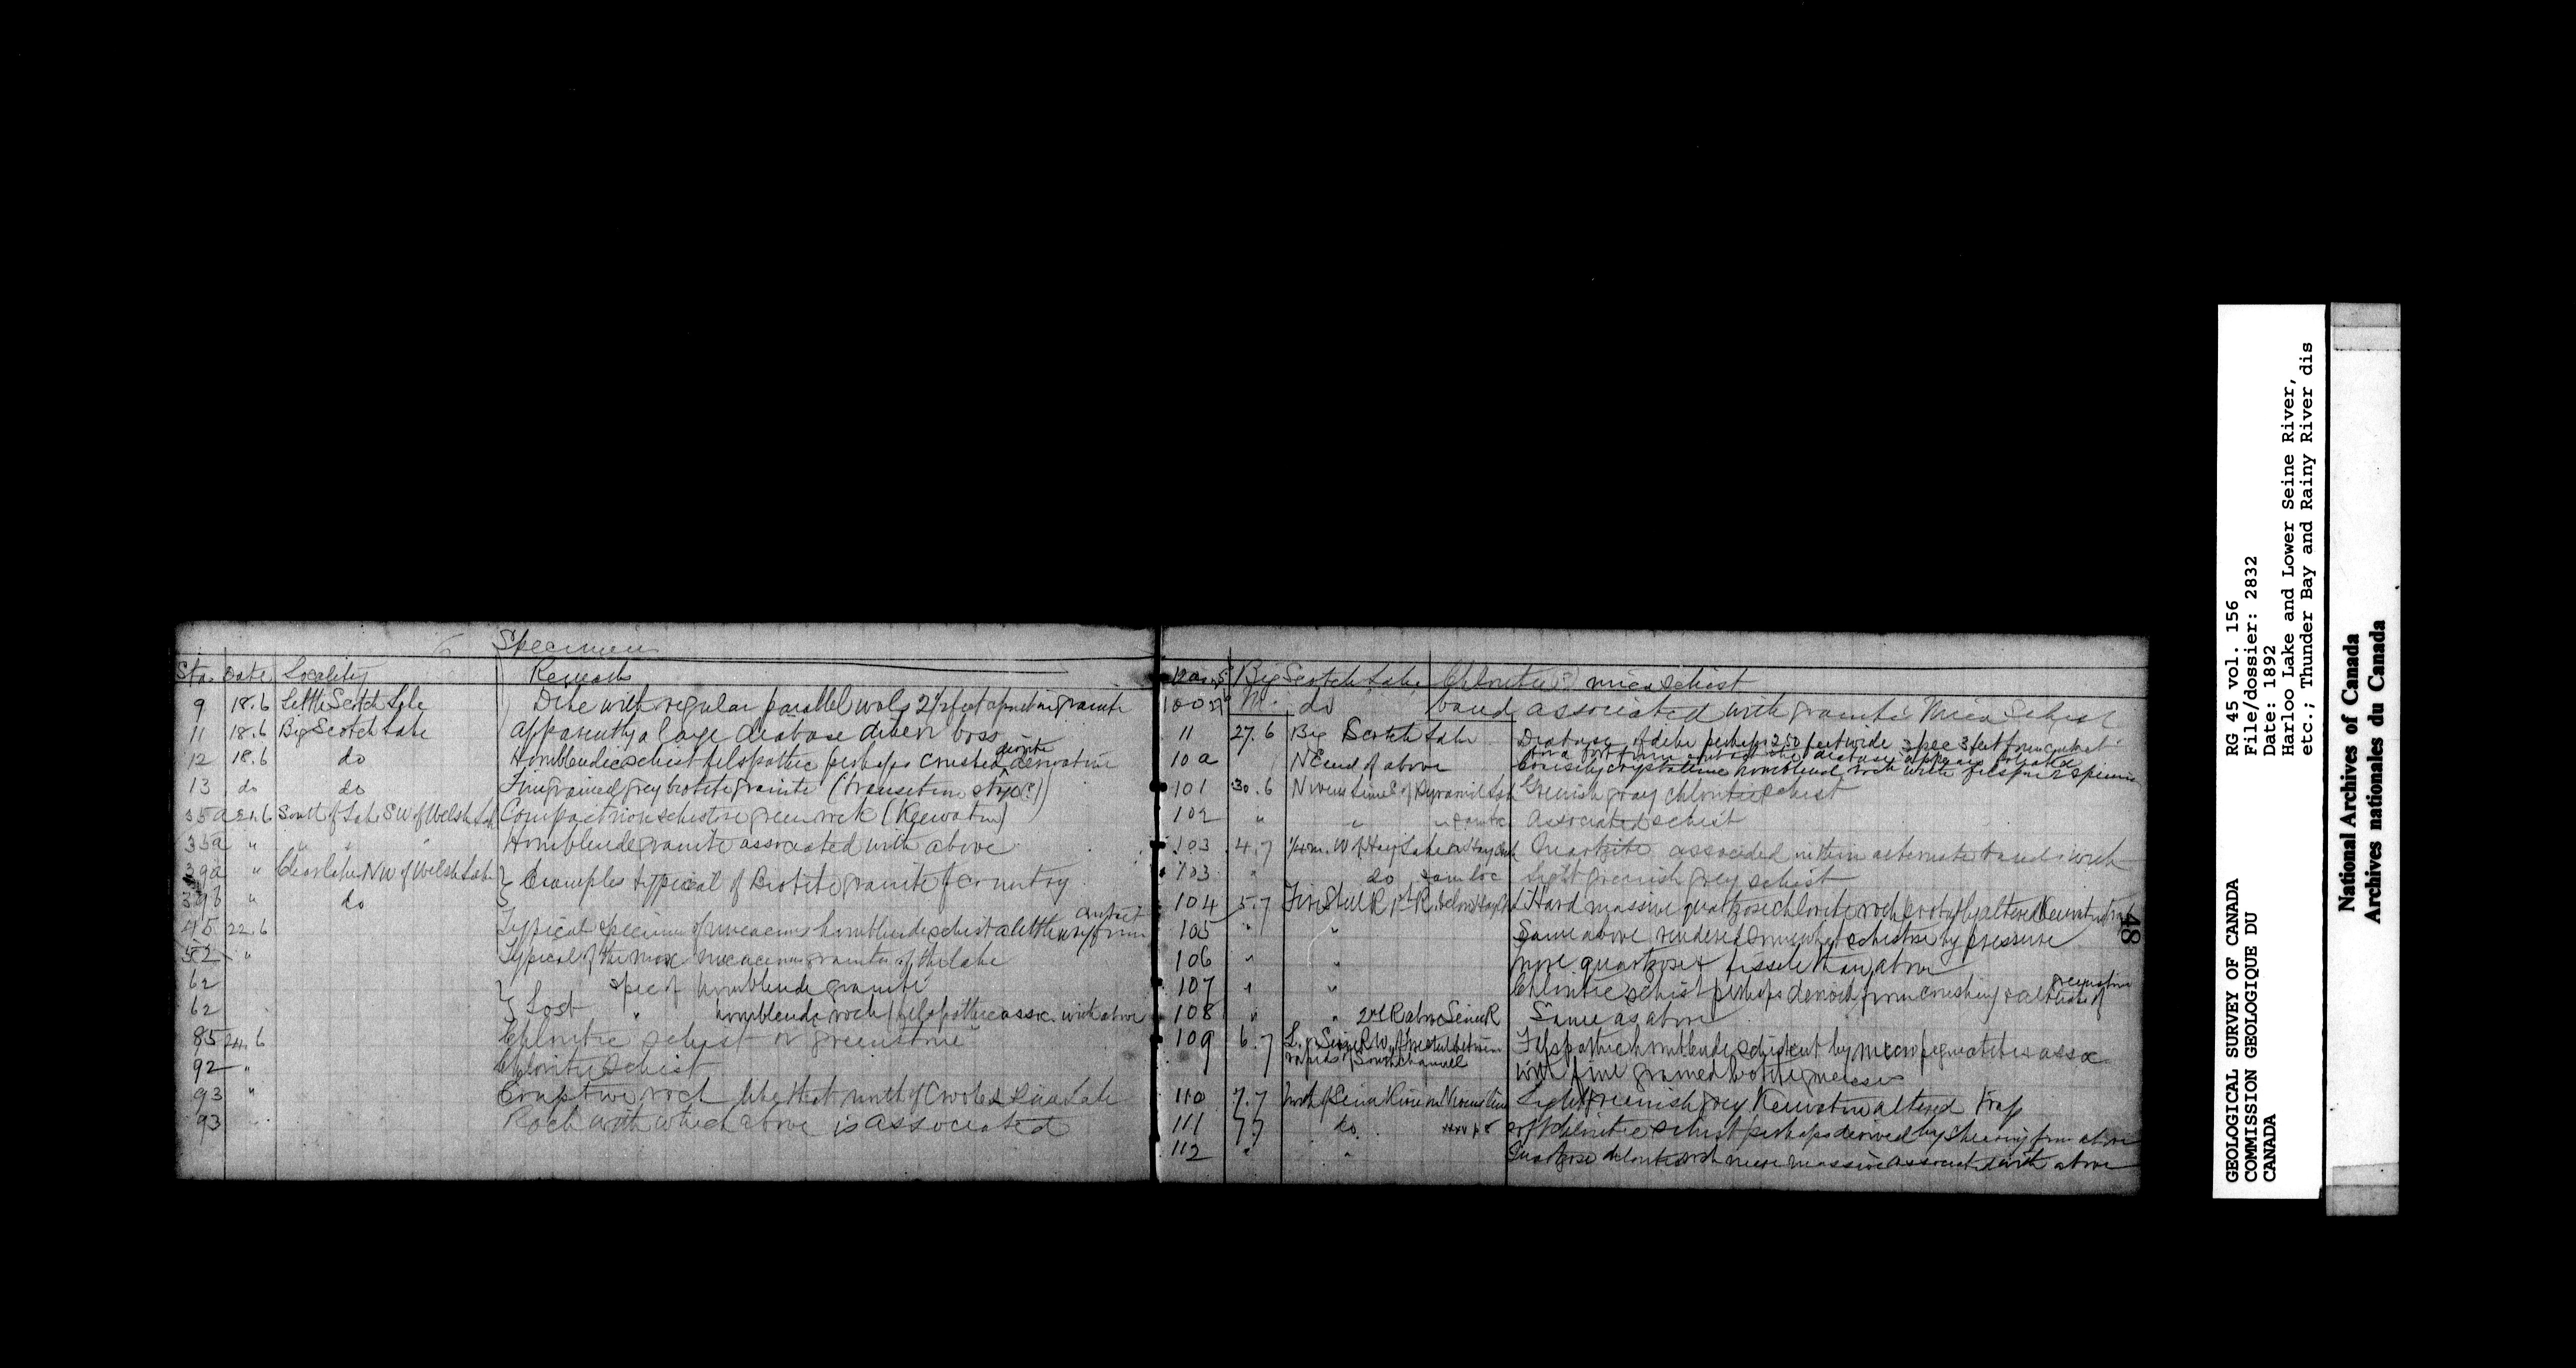 Specimen
Sta. Date Locality Remarks
9 18.6 Little Scotch Lake Dike with regular parallel walls 2½ feet apart in granite
11 18.6 Big Scotch Lake apparently a large diabase dike or boss
12 18.6 do Hornblendic schist felspathic perhaps crushed diorite derivative
13 do do Fine grained grey biotite granite (transition stage?)
35a 21.6 South of Lake SW of Welsh Lak Compact non schistose green rock (Keewatin)
35a " " " " Hornblende granite associated with above
39a " Clear Lake NW of Welsh Lak } Examples typical of Biotite granite of country
39b " do
45 22.6 Typical specimen of micaceous hornblende schist a little way from contact
52 " Typical of the more micaceous granite of the lake
62 } Lost spec of hornblende granite
62 " hornblende rock felspathic assoc. with above
85 24.6 Chloritic schist or greenstone
92 " Chlorite schist
93 " Eruptive rock like that north of Crooked Pine Lake
93 Rock with which above is associated
Big Scotch Lake Chloritic (?) mica schist
100 do band associated with granite Mica Schist
11 27.6 Big Scotch Lake Diabase of dike perhaps 250 feet wide spec 3 feet from contact
10a NE end of above Coarsely crystalline hornblende rock with felspar 2 specimens
101 30.6 Nivens Line S of Pyramid Lak Greenish gray chlorite schist
102 " " " Associated schist
103 4.7 ¼ m. W of Hay Lake Quartzite associated with in alternate bands with
103 " do same loc Light greenish grey schist
104 5.7 Fire Steel R 1st R. below Hard massive quartzose chlorite rock probably altered Keewatin trap
105 " " Same above rendered somewhat schistose by pressure
106 " " more quartzose & fissile than above
107 " " Chloritic schist perhaps derived from crushing & alteration of greenstone
108 " " 2nd R above Seine R Same as above
109 6.7 L. Seine R W of Firesteel between Felspathic hornblende schist cut by micropegmatite & assoc
rapids of South Channel with fine grained biotite gneisses
110 7.7 North of Seine River on Nivens Line Light greenish grey Keewatin altered trap
111 7.7 do soft chloritic schist perhaps derived by shearing from above
112 " " Quartzose chlorite rock more massive associated with above
48
GEOLOGICAL SURVEY OF CANADA RG 45 vol. 156
COMMISSION GEOLOGIQUE DU File/dossier: 2832
CANADA Date: 1892
Harloo Lake and Lower Seine River,
etc.; Thunder Bay and Rainy River dis
National Archives of Canada
Archives nationales du Canada